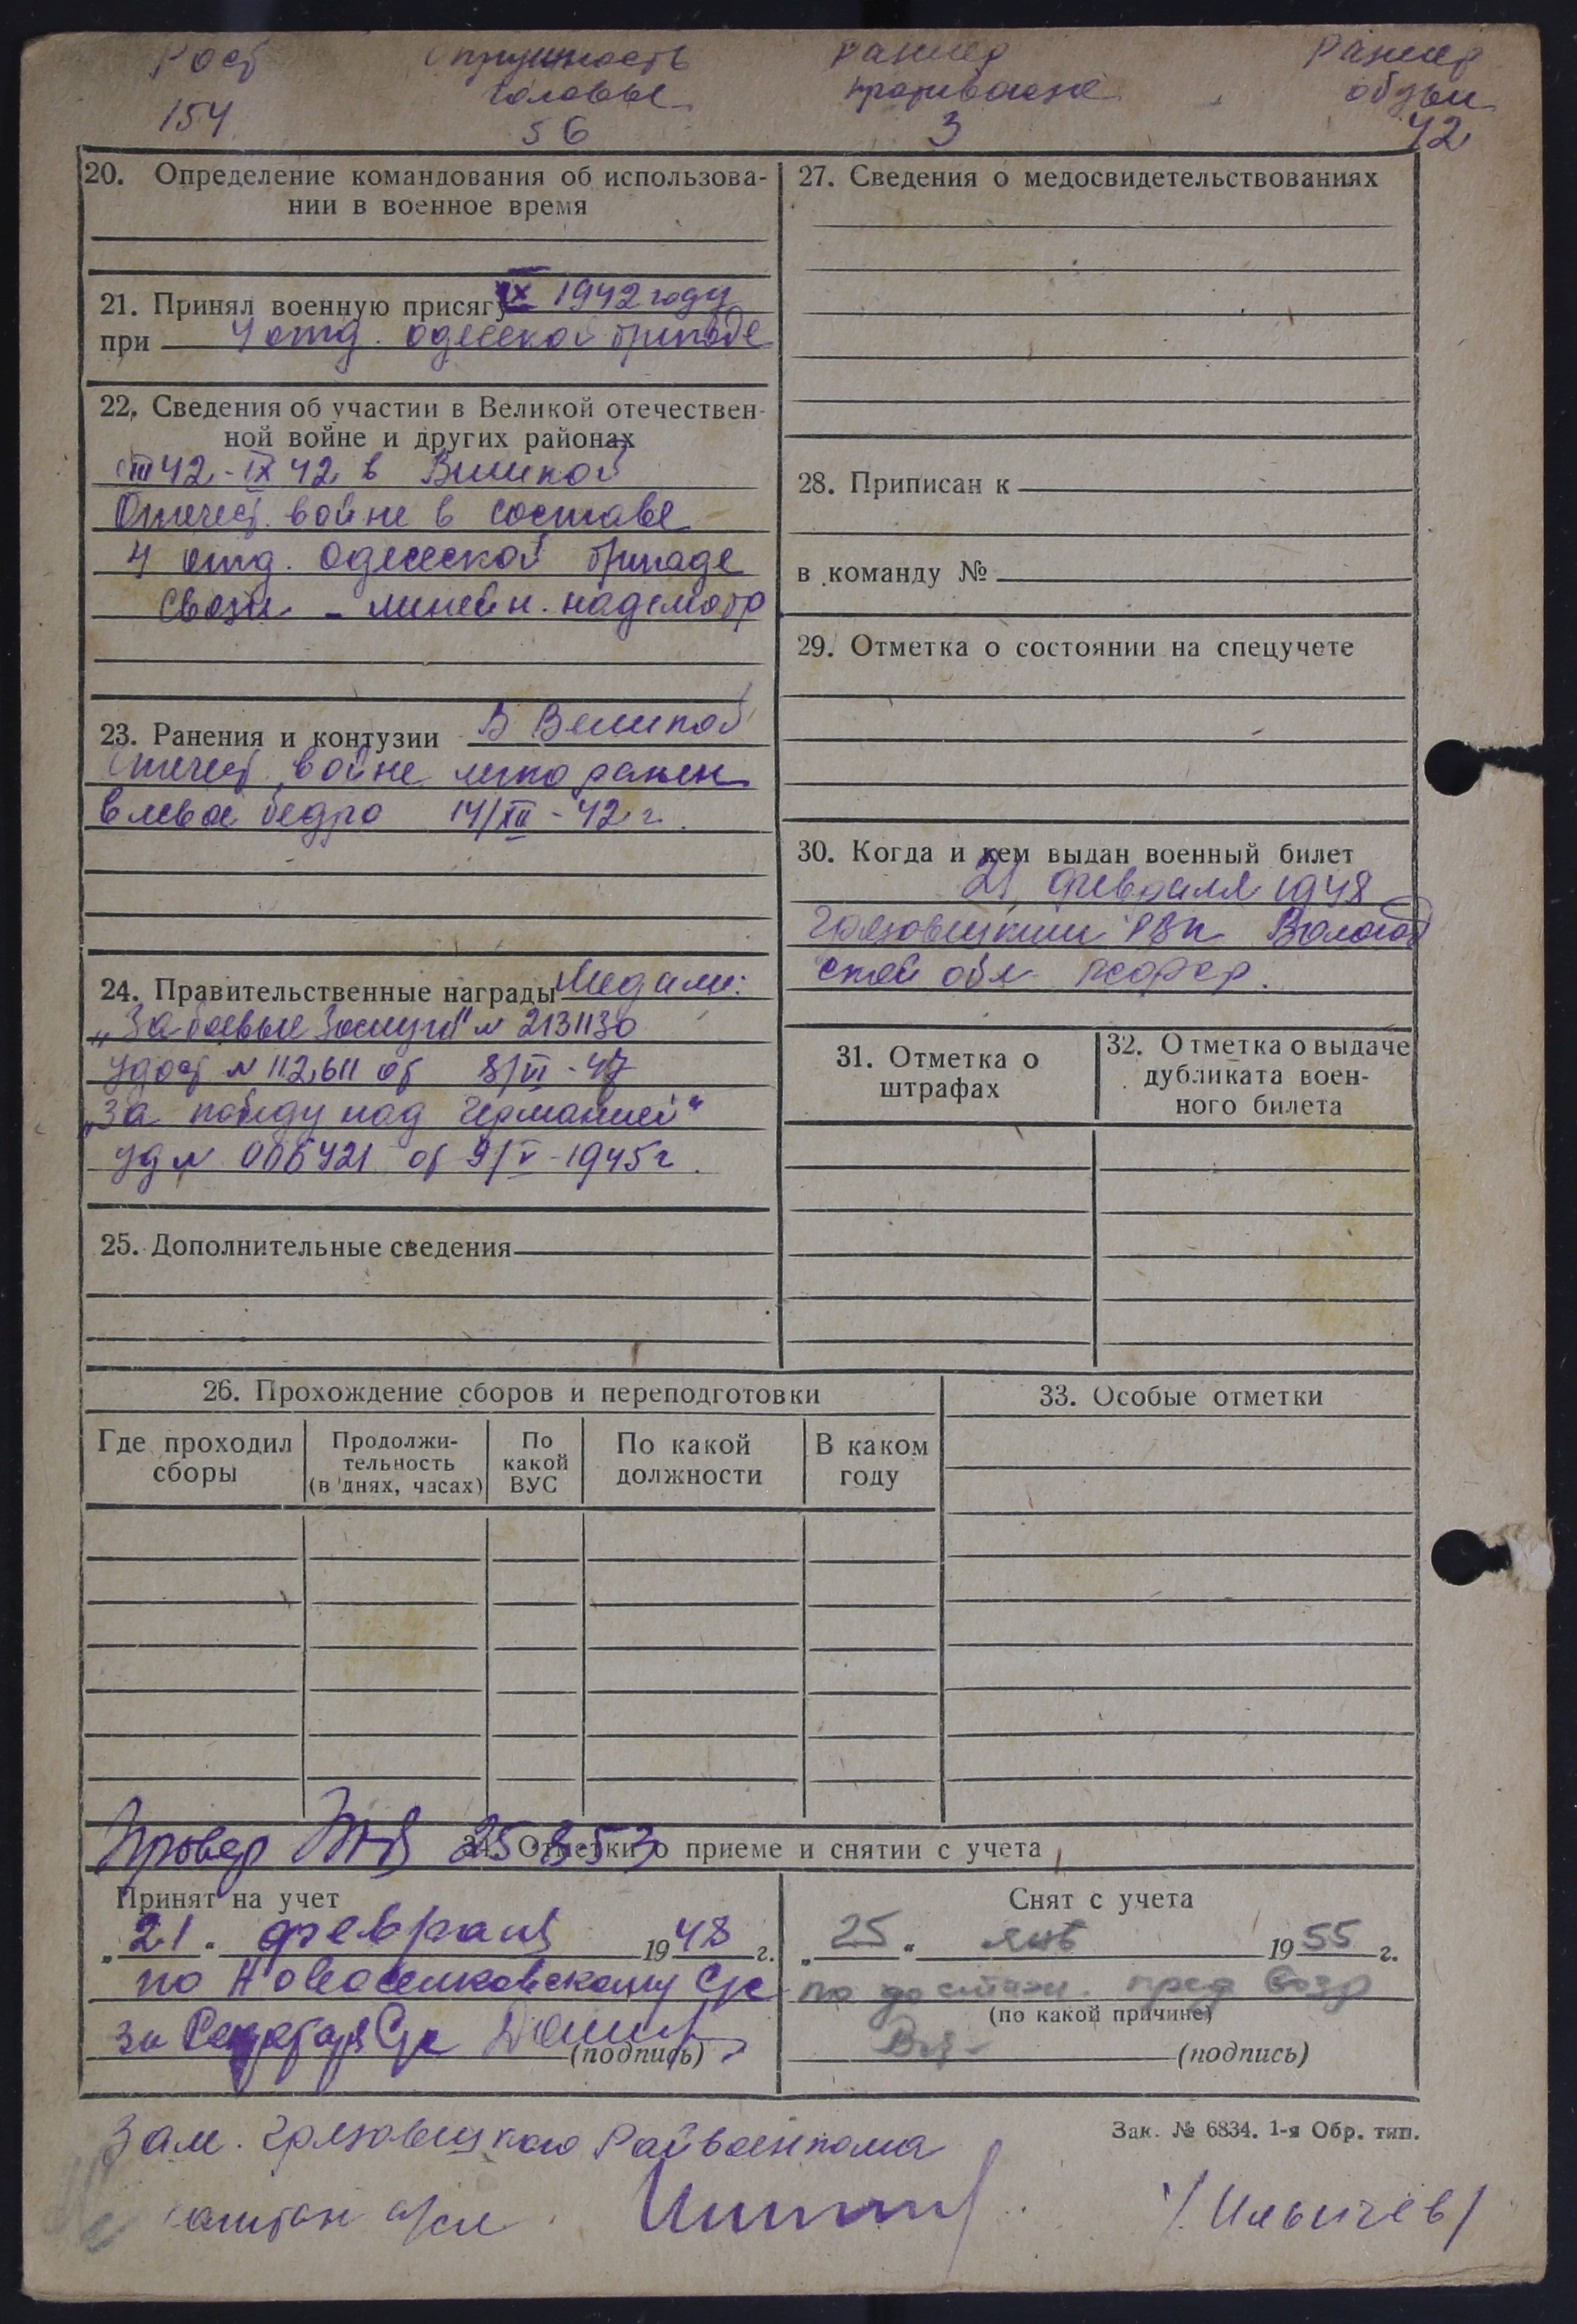 Рост
154
Окружность
головы
56
размер
противогаза
3
Размер
обуви
42
20. Определение командования об использова-
нии в военное время
21. Принял военную присягу IX 1942 году
при 4 отд. одесской бригаде
22. Сведения об участии в Великой отечествен-
ной войне и других районах
42 - IX 42 в Великой
Отечест. войне в составе
4 отд. Одесской бригаде
связи - линейн. надсмотр
23. Ранения и контузии В Великой
Отечест. войне легко ранен
в левое бедро 14/ -42 г.
24. Правительственные награды Медали:
„За боевые Заслуги" № 2131130
удост № 112611 от 8/VI - 47
„За победу над Германией"
уд № 006421 от 9/V-1945 г.
25. Дополнительные сведения
27. Сведения о медосвидетельствованиях
28. Приписан к
в команду №
29. Отметка о состоянии на спецучете
30. Когда и кем выдан военный билет
21 февраля 1948
Грязовецким РВК Вологод
ской обл. РСФСР.
31. Отметка о
штрафах
32. Отметка о выдаче
дубликата воен-
ного билета
26. Прохождение сборов и переподготовки
Где проходил
сборы
Продолжи-
тельность
(в днях, часах)
По
какой
ВУС
По какой
должности
В каком
году
33. Особые отметки
Провер
34. Отметки о приеме и снятии с учета
Принят на учет
„21" февраля 1948 г.
по Новоселковскому С/с
за Секретаря С/с
(подпись)
Снят с учета
„25" янв 1955 г.
по достиж. пред возр
(по какой причине)
(подпись)
Зак. № 6834. 1-я Обр. тип.
Зам. Грязовецкого Райвоенкома
капитан а/сл
/Ильичев/